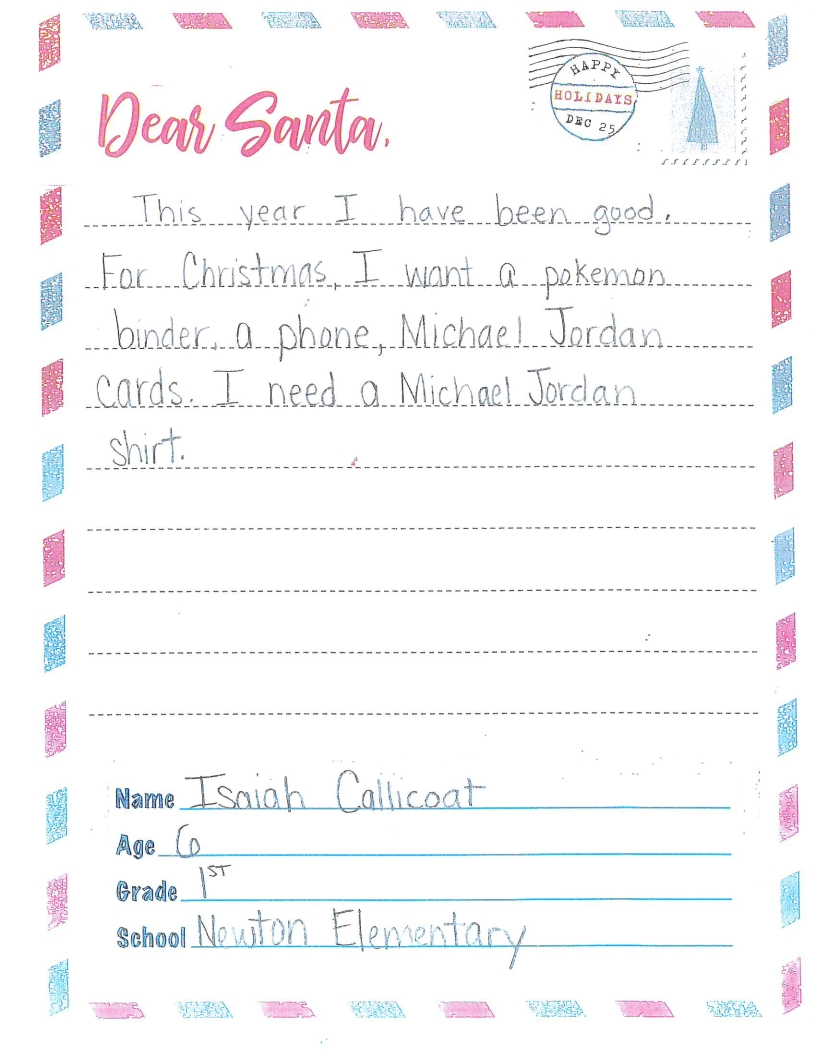 HAPPY
HOLIDAYS
DEC 25
Dear Santa,
This year I have been good.
For Christmas, I want a pokemon
binder, a phone, Michael Jordan
cards. I need a Michael Jordan
shirt.
Name Isaiah Callicoat
Age 6
Grade 1ST
School Newton Elementary